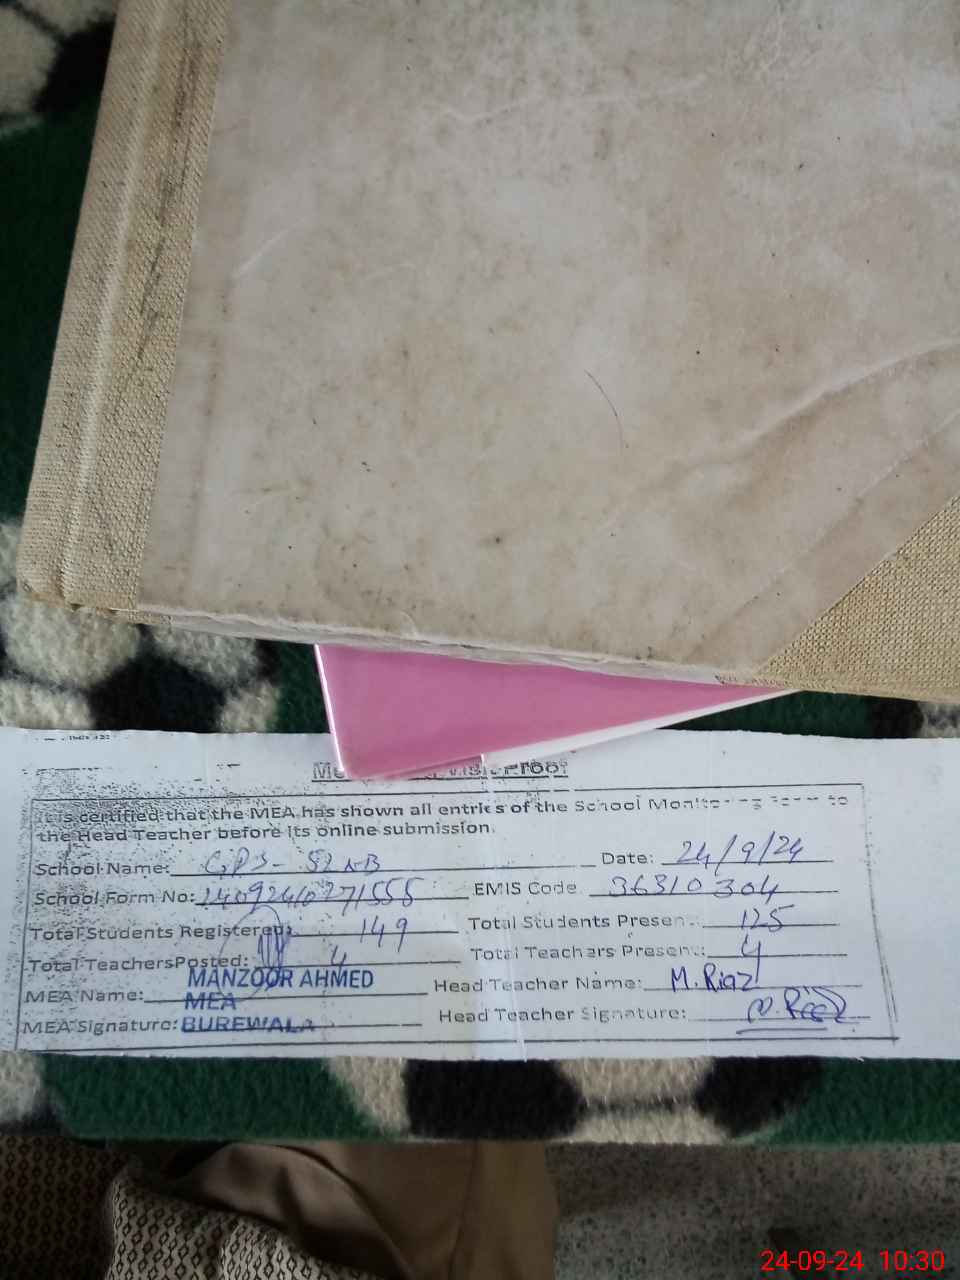 It is certified that the MEA has shown all entries of the School Monitoring Form to
the Head Teacher before its online submission.
School Name: GPS- 52 KB Date: 24/9/24
School Form No: EMIS Code 36310304
Total Students Registered: 149 Total Students Presen
Total Teachers Posted: 4 Total Teachers Present: 4
125
MEA Name: MANZOOR AHMED Head Teacher Name: M. Riaz
MEA
MEA Signature: BUREWALA Head Teacher Signature: M. Riaz
24-09-24 10:30